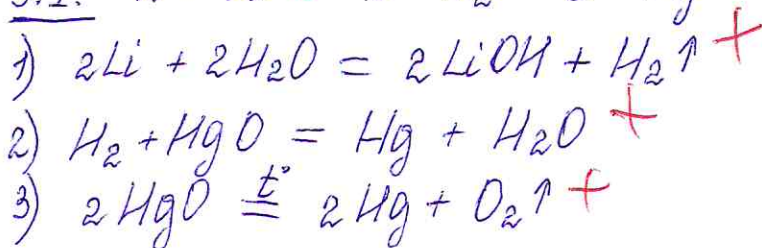 3.1.
1) 2Li + 2H₂O = 2LiOH + H₂↑ +
2) H₂ + HgO = Hg + H₂O +
3) 2HgO =t°= 2Hg + O₂↑ +